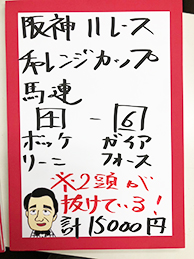 阪神11レース
チャレンジカップ
馬連
4-6
ボッケ ガイア
リーニ フォース
※2頭が
抜けている!
計15000円